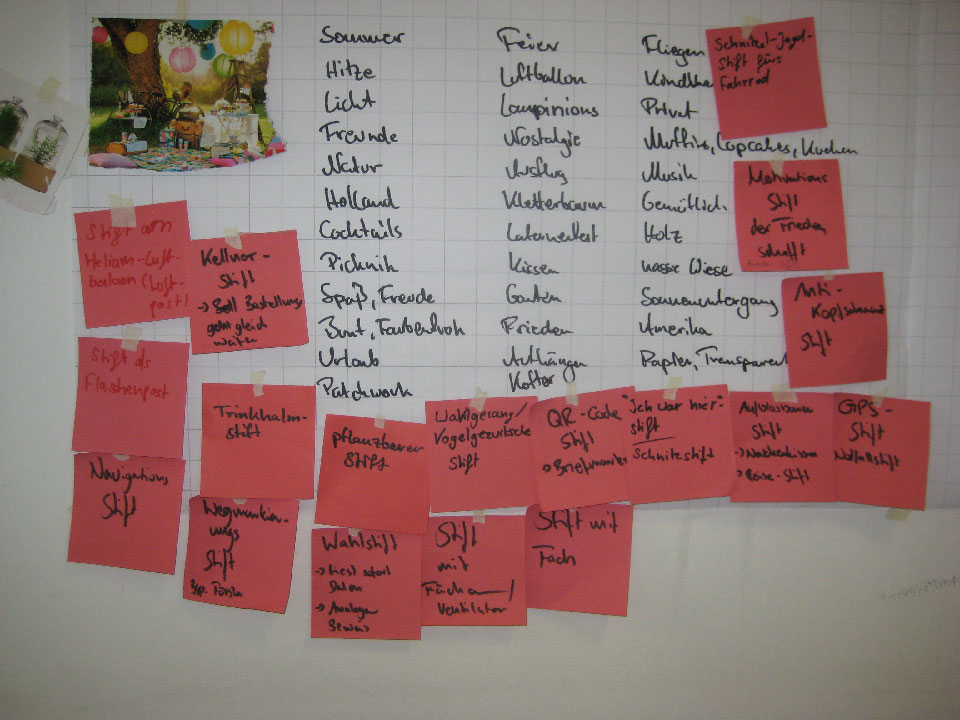 Sommer
Hitze
Licht
Freunde
Natur
Holland
Cocktails
Picknik
Spaß, Freude
Bunt, Farbenfroh
Urlaub
Patchwork
Feier
Luftballon
Lampinions
Nostalgie
Ausflug
Kletterbaum
Laternenfest
Kissen
Garten
Frieden
Aufhängen
Koffer
Fliegen
Privat
Muffins, Cupcakes, Kuchen
Musik
Gemütlich
Holz
nasse Wiese
Sonnenuntergang
Amerika
Papier, Transparent
Schnitzel-Jagd-
Stift fürs
Fahrrad
Motivations
Stift
der Frieden
schafft
Anti-
Kopfschmerz
Stift
Stift am
Helium-Luft-
baloon (Luft-
post)
Kellner-
Stift
→ Bestellung
geht gleich
weiter
Stift als
Flaschenpost
Trinkhalm-
stift
pflanzbarer
Stift
Vogelgezwitscher
Stift
QR-Code
Stift
→ Briefmarke
"Ich war hier"-
stift
Schnitzstift
Aufblasbarer
Stift
→ Nackenkissen
→ Reise-Stift
GPS-
Stift
Notfallstift
Navigations
Stift
Wegmarkier-
ungs
Stift
Bsp. Förster
Wahlstift
→ liest sofort
Daten
→ Analoger
Beweis
Stift
mit
Fächer/
Ventilator
Stift mit
Fach